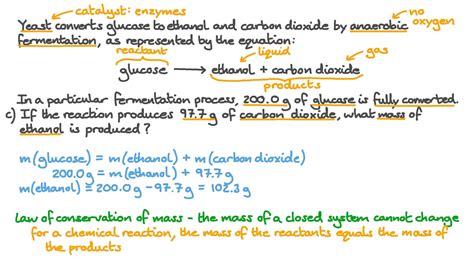 catalyst: enzymes
no oxygen
Yeast converts glucose to ethanol and carbon dioxide by anaerobic
fermentation, as represented by the equation:
reactant
liquid
gas
glucose → ethanol + carbon dioxide
products
In a particular fermentation process, 200.0 g of glucose is fully converted.
c) If the reaction produces 97.7 g of carbon dioxide, what mass of
ethanol is produced?
m(glucose) = m(ethanol) + m(carbon dioxide)
200.0g = m(ethanol) + 97.7g
m(ethanol) = 200.0g - 97.7g = 102.3g
Law of conservation of mass - the mass of a closed system cannot change
for a chemical reaction, the mass of the reactants equals the mass of
the products